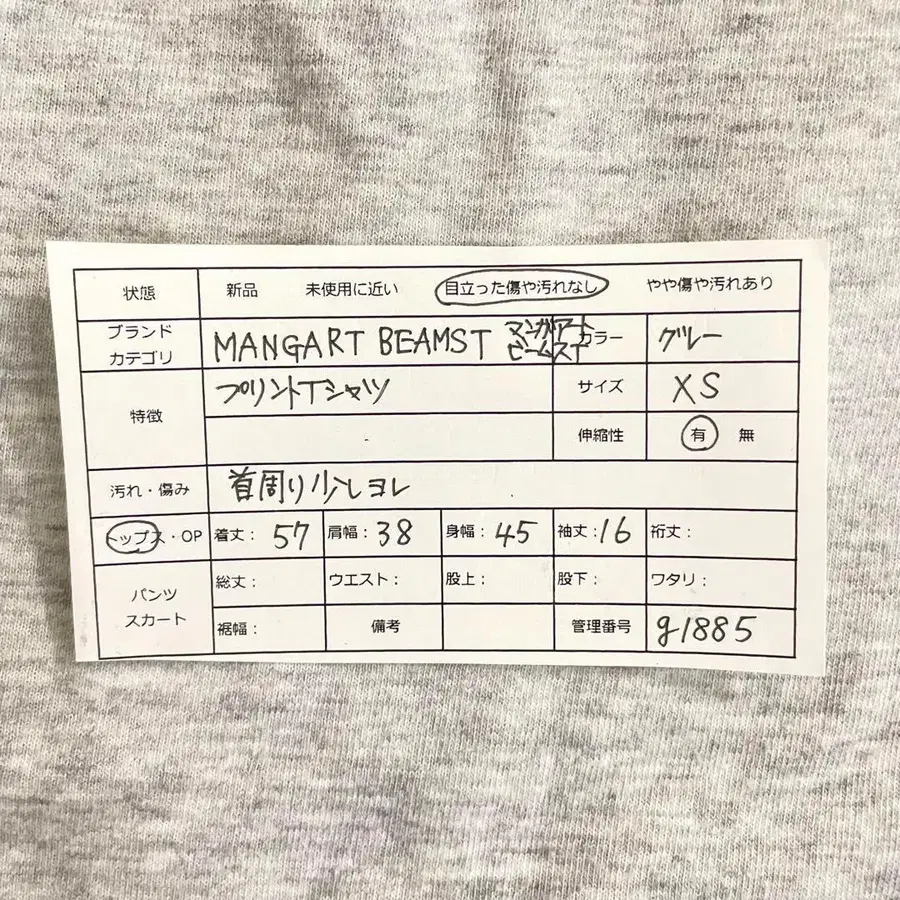 状態 新品 未使用に近い 目立った傷や汚れなし やや傷や汚れあり
ブランド
カテゴリ MANGART BEAMST マンガアート ビームスT カラー グレー
特徴 プリントTシャツ サイズ XS
伸縮性 有 無
汚れ・傷み 首周り少しヨレ
トップス・OP 着丈: 57 肩幅: 38 身幅: 45 袖丈: 16 裄丈:
パンツ
スカート
総丈: ウエスト: 股上: 股下: ワタリ:
裾幅: 備考 管理番号 g1885